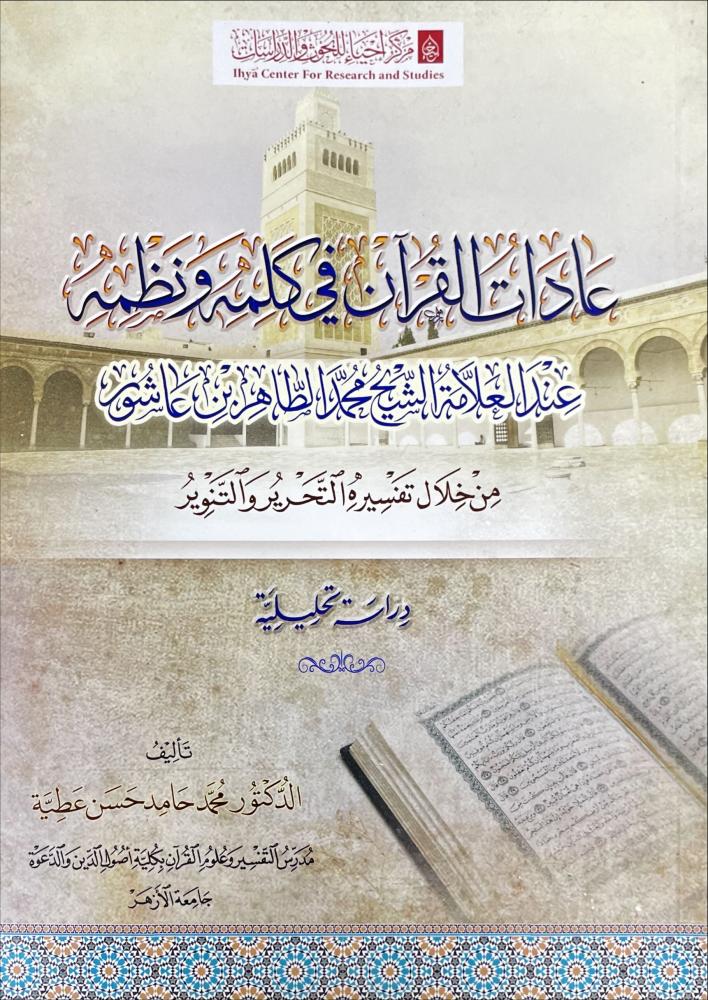 مركز إحياء للبحوث والدراسات
Ihyā Center For Research and Studies
عَادَاتُ القُرآنِ في كَلِمِهِ وَنَظْمِهِ
عِنْدَ العَلَّامَةُ الشَّيْخِ مُحَمَّد الطَّاهِر بْنِ عَاشُور
مِنْ خِلَال تَفْسِيرِهِ التَّحْرِيرُ وَالتَّنْوِيرُ
دِرَاسَة تَحْلِيلِيَّة
تَأْلِيفُ
الدُّكْتُور مُحَمَّد حَامِد حَسَن عَطِيَّة
مُدَرِّسُ التَّفْسِيرِ وَعُلُومِ القُرْآنِ بِكُلِّيَّةِ أُصُولِ الدِّينِ وَالدَّعْوَةِ
جَامِعَةُ الأَزْهَرْ